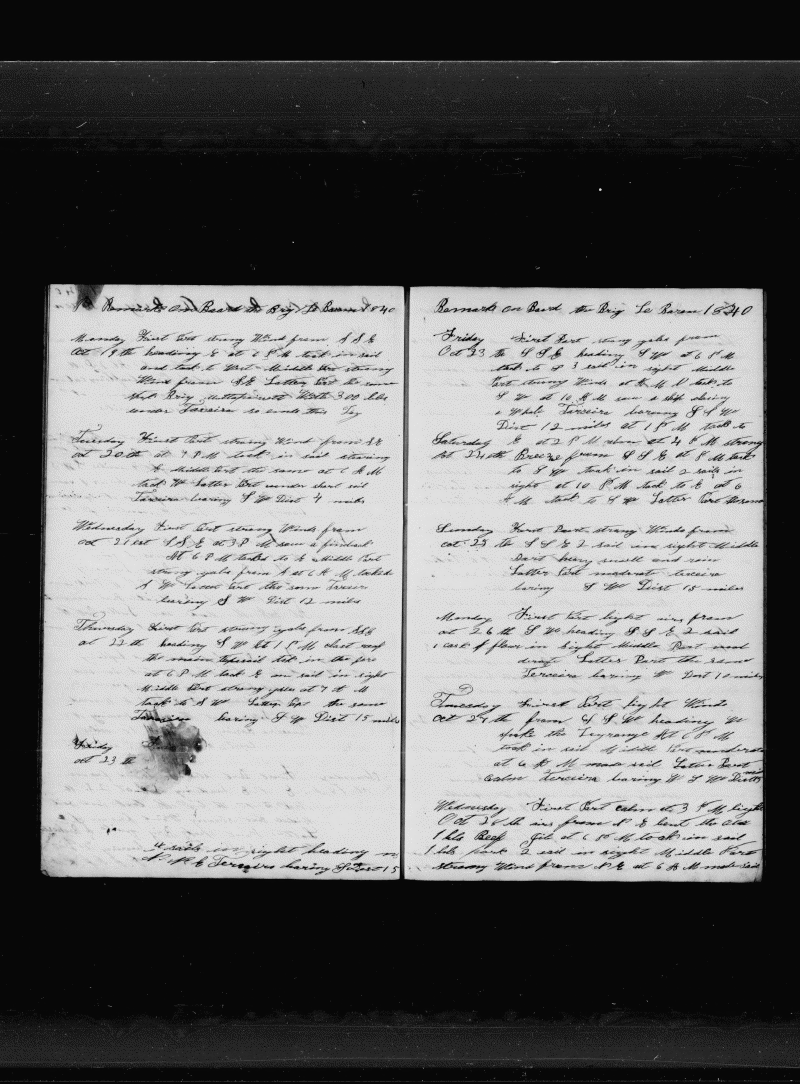 Remarks on Board the Brig Le Baron 1840
Monday First Part strong Wind from S S E
Oct 19th heading E at 6 P M took in sail
and tack to West Middle Part strong
Wind from SE Latter Part the same
this Brig with 300 bbls
under Terceira so ends this Day
Tuesday First Part strong Wind from SE
oct 20th at P M took in sail
Middle Part the same at 6 A M
tack W Latter Part under short sail
Terceira bearing S W Dist 4 miles
Wednesday First Part strong Winds from
oct 21st S S E at 3 P M saw a finback
At 6 P M tacked to E Middle Part
strong gales from S at 6 A M tacked
S W Latter Part the same Terceira
bearing S W Dist 12 miles
Thursday First Part strong gales from SSE
oct 22th heading S W at 1 P M close reef
the main topsail took in the fore
at 6 P M tack E in sail in sight
Middle Part strong gales at 7 A M
tack to S W Latter Part the same
Terceira bearing S W Dist 15 miles
Friday
oct 23th
4 sails in sight heading
Terceira bearing Dist 15
Remarks on Board the Brig Le Baron 1840
Friday First Part strong gales from
Oct 23th S S E heading S W at 6 P M
tack to S 3 sails in sight Middle
Part strong Winds at A M tack to
S W at 10 A M saw a ship
a Whale Terceira bearing S S W
Dist 12 miles at 1 P M tack to
Saturday E at 2 P M at 4 P M strong
oct 24th Breeze from S S E at P M tack
to S W took in sail 2 sails in
sight at 10 P M tack to E at 6
A M tack to S W Latter Part
Sunday First Part strong Winds from
oct 25th S S E 2 sail in sight Middle
Part heavy swell and rain
Latter Part moderate Terceira
bearing S W Dist 15 miles
Monday First Part light airs from
oct 26th S W heading S S E 2 sail
1 cask of flour in sight Middle Part mod
erate Latter Part the same
Terceira bearing W Dist 10 miles
Tuesday First Part light Winds
oct 27th from S S W heading W
spoke the Lagrange At 6 P M
took in sail Middle Part moderate
at 6 A M made sail Latter Part
calm Terceira bearing W S W Dist
Wednesday First Part calm at 3 P M light
Oct 28th airs from N E
1 bbl Beef at 6 P M took in sail
1 bbl pork 2 sail in sight Middle Part
strong Wind from N E at 6 A M made sail